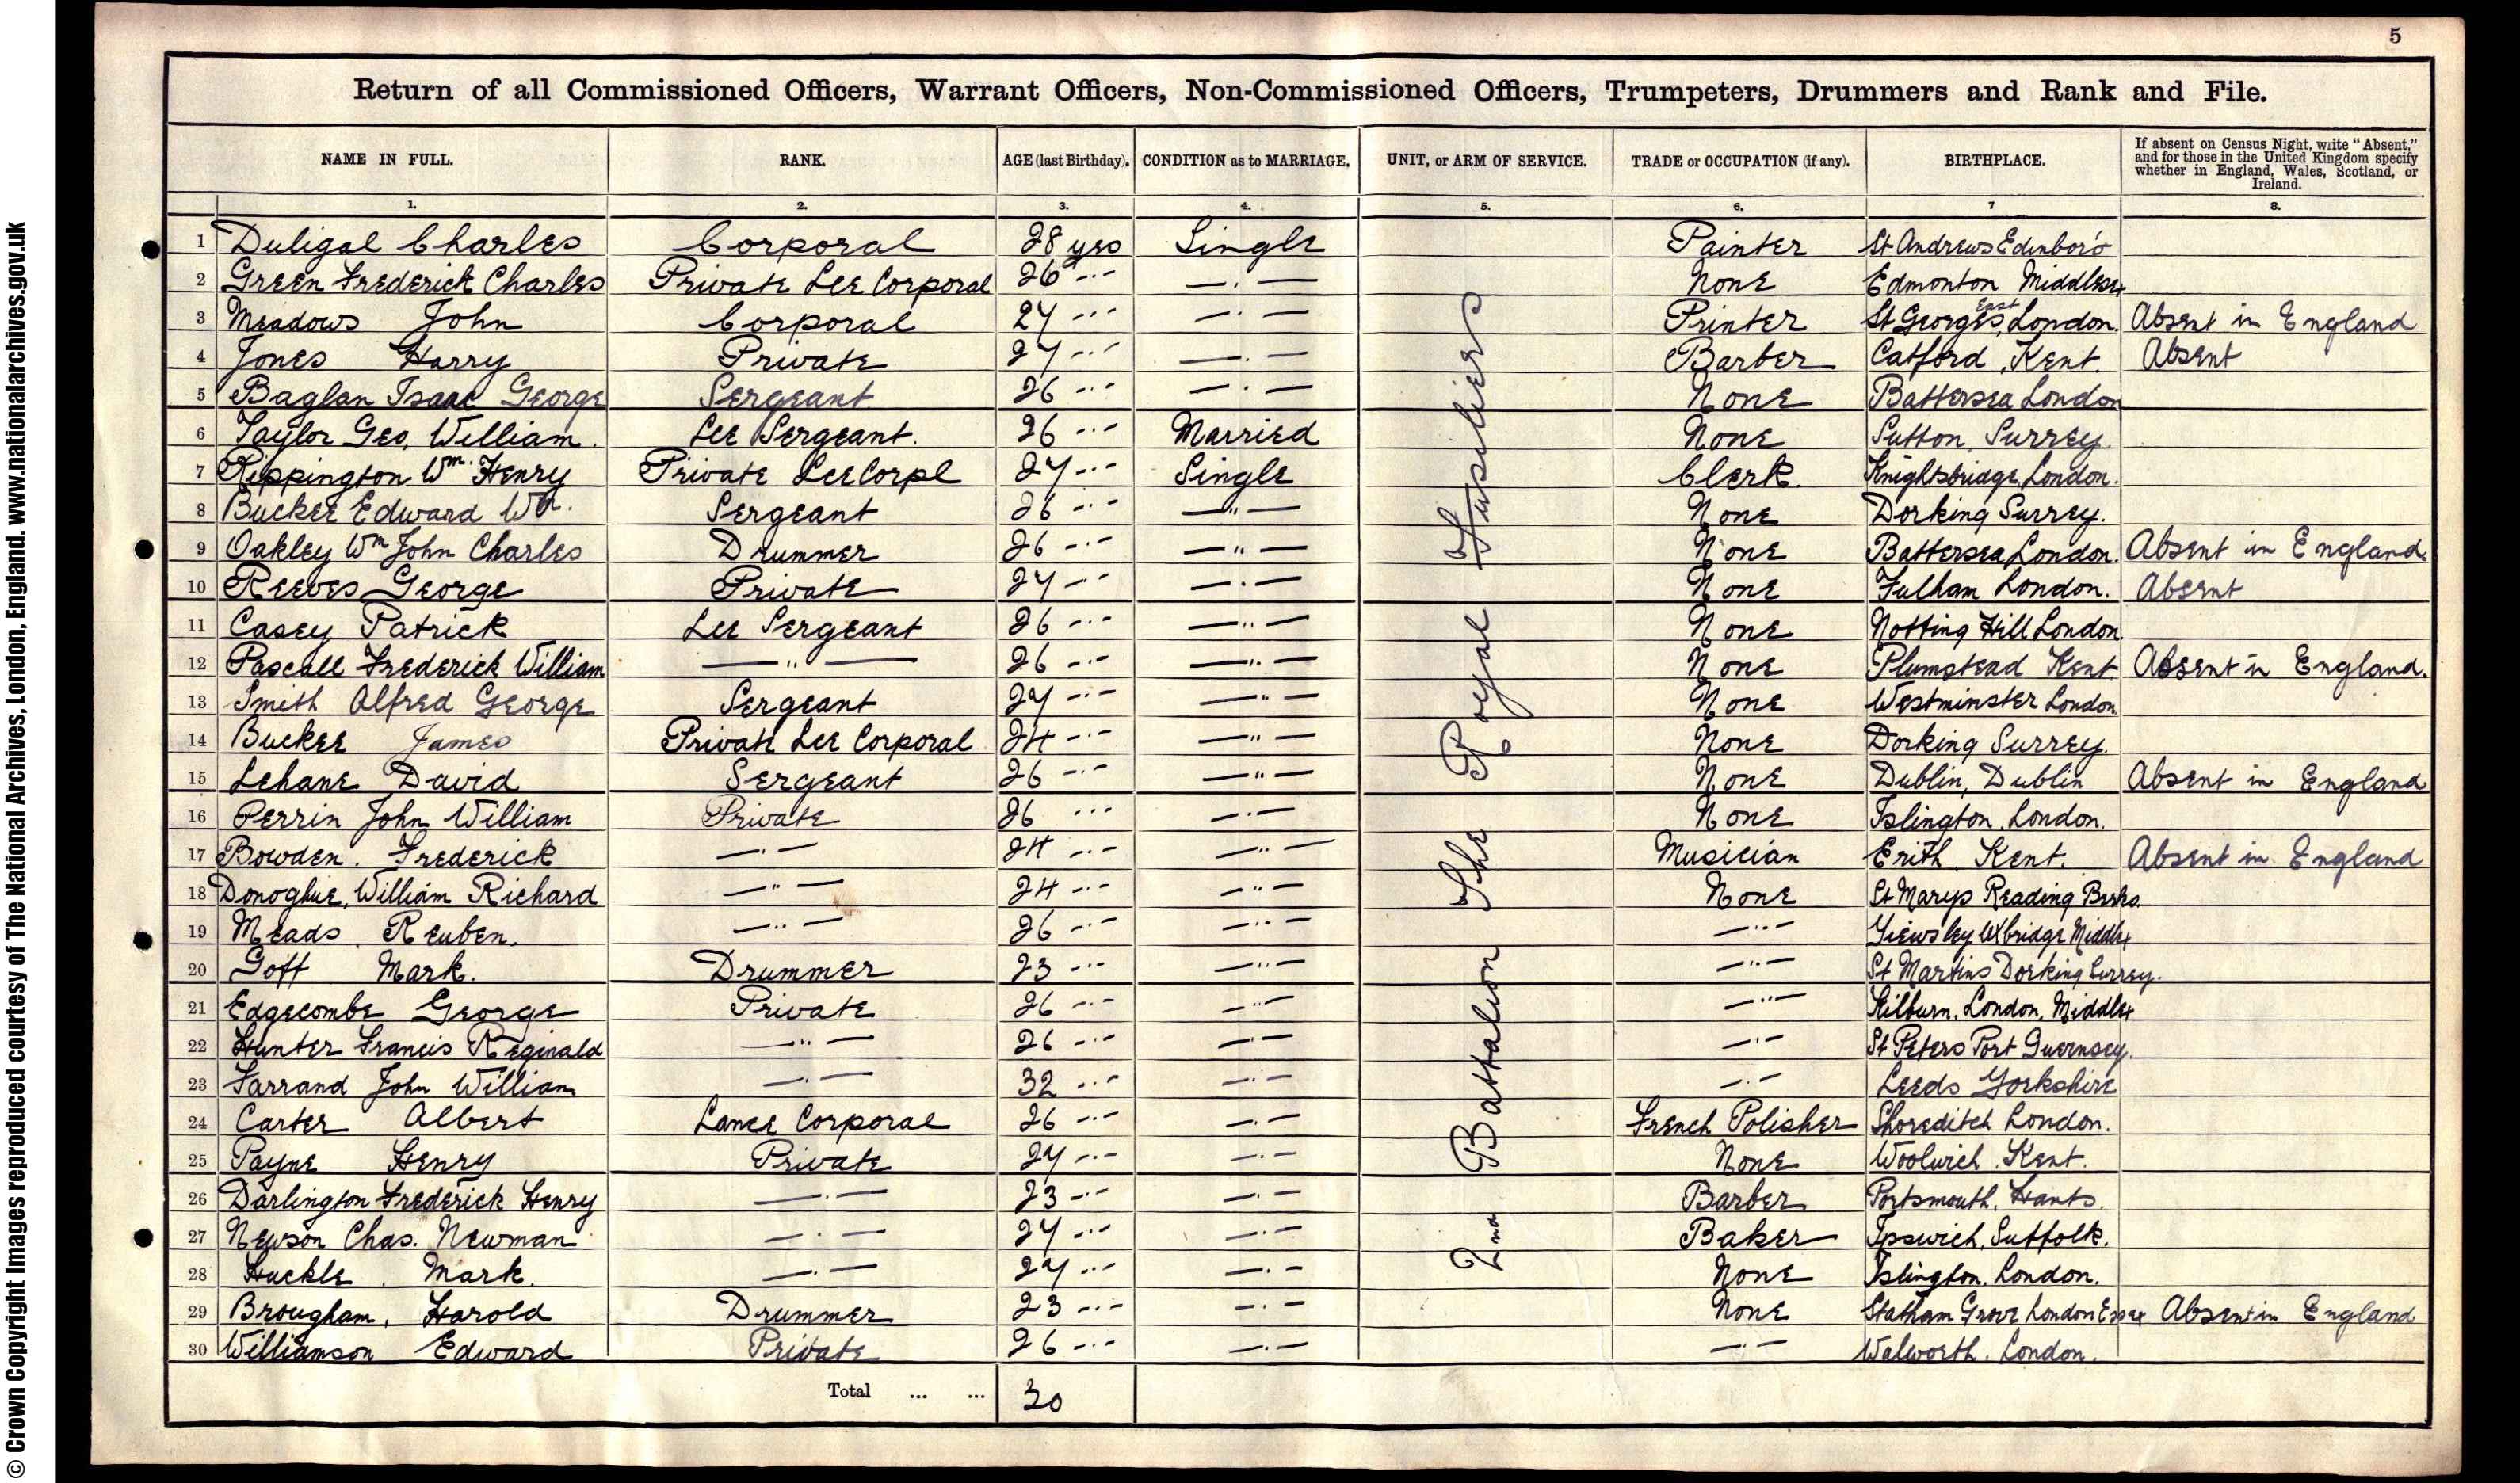 5
Return of all Commissioned Officers, Warrant Officers, Non-Commissioned Officers, Trumpeters, Drummers and Rank and File.
NAME IN FULL. RANK. AGE (last Birthday). CONDITION as to MARRIAGE. UNIT, or ARM OF SERVICE. TRADE or OCCUPATION (if any). BIRTHPLACE. If absent on Census Night, write "Absent," and for those in the United Kingdom specify whether in England, Wales, Scotland, or Ireland.
1. 2. 3. 4. 5. 6. 7 8.
1 Duligal Charles Corporal 28 yrs Single Painter St Andrews Edinboro'
2 Green Frederick Charles Private Lce Corporal 26 " — " — None Edmonton Middlesex
3 Meadows John Corporal 27 " — " — Printer St Georges East, London. Absent in England
4 Jones Harry Private 27 " — " — Barber Catford, Kent. Absent
5 Baglan Isaac George Sergeant 26 " — " — None Battersea London
6 Taylor Geo. William. Lce Sergeant. 26 " Married None Sutton Surrey.
7 Rippington Wm. Henry Private Lce Corpl 27 " Single Clerk. Knightsbridge, London.
8 Buckee Edward Wm. Sergeant 26 " — " — None Dorking Surrey.
9 Oakley Wm John Charles Drummer 26 " — " — None Battersea London. Absent in England.
10 Reeves George Private 27 " — " — None Fulham London. Absent
11 Casey Patrick Lce Sergeant 26 " — " — None Notting Hill London
12 Pascall Frederick William — " — 26 " — " — None Plumstead Kent Absent in England.
13 Smith Alfred George Sergeant 27 " — " — None Westminster London
14 Buckee James Private Lce Corporal 24 " — " — None Dorking Surrey.
15 Lehane David Sergeant 26 " — " — None Dublin, Dublin Absent in England
16 Perrin John William Private 26 " — " — None Islington, London.
17 Bowden. Frederick — " — 24 " — " — Musician Erith Kent. Absent in England
18 Donoghue, William Richard — " — 24 " — " — None St Marys Reading Berks.
19 Meads. Reuben. — " — 26 " — " — — " — Yiewsley Uxbridge Middlx
20 Goff Mark. Drummer 23 " — " — — " — St Martins Dorking Surrey.
21 Edgecombe George Private 26 " — " — — " — Kilburn, London, Middlex
22 Hunter Francis Reginald — " — 26 " — " — — " — St Peters Port Guernsey.
23 Farrand John William — " — 32 " — " — — " — Leeds Yorkshire
24 Carter Albert Lance Corporal 26 " — " — French Polisher Shoreditch London.
25 Payne Henry Private 27 " — " — None Woolwich. Kent.
26 Darlington Frederick Henry — " — 23 " — " — Barber Portsmouth, Hants.
27 Newson Chas. Newman — " — 27 " — " — Baker Ipswich, Suffolk.
28 Huckle. Mark. — " — 27 " — " — None Islington. London.
29 Brougham, Harold Drummer 23 " — " — None Statham Grove London Essex Absent in England
30 Williamson Edward Private 26 " — " — — " — Walworth. London.
2nd Battalion The Royal Fusiliers
Total ... ... 30
© Crown Copyright Images reproduced courtesy of The National Archives, London, England. www.nationalarchives.gov.uk